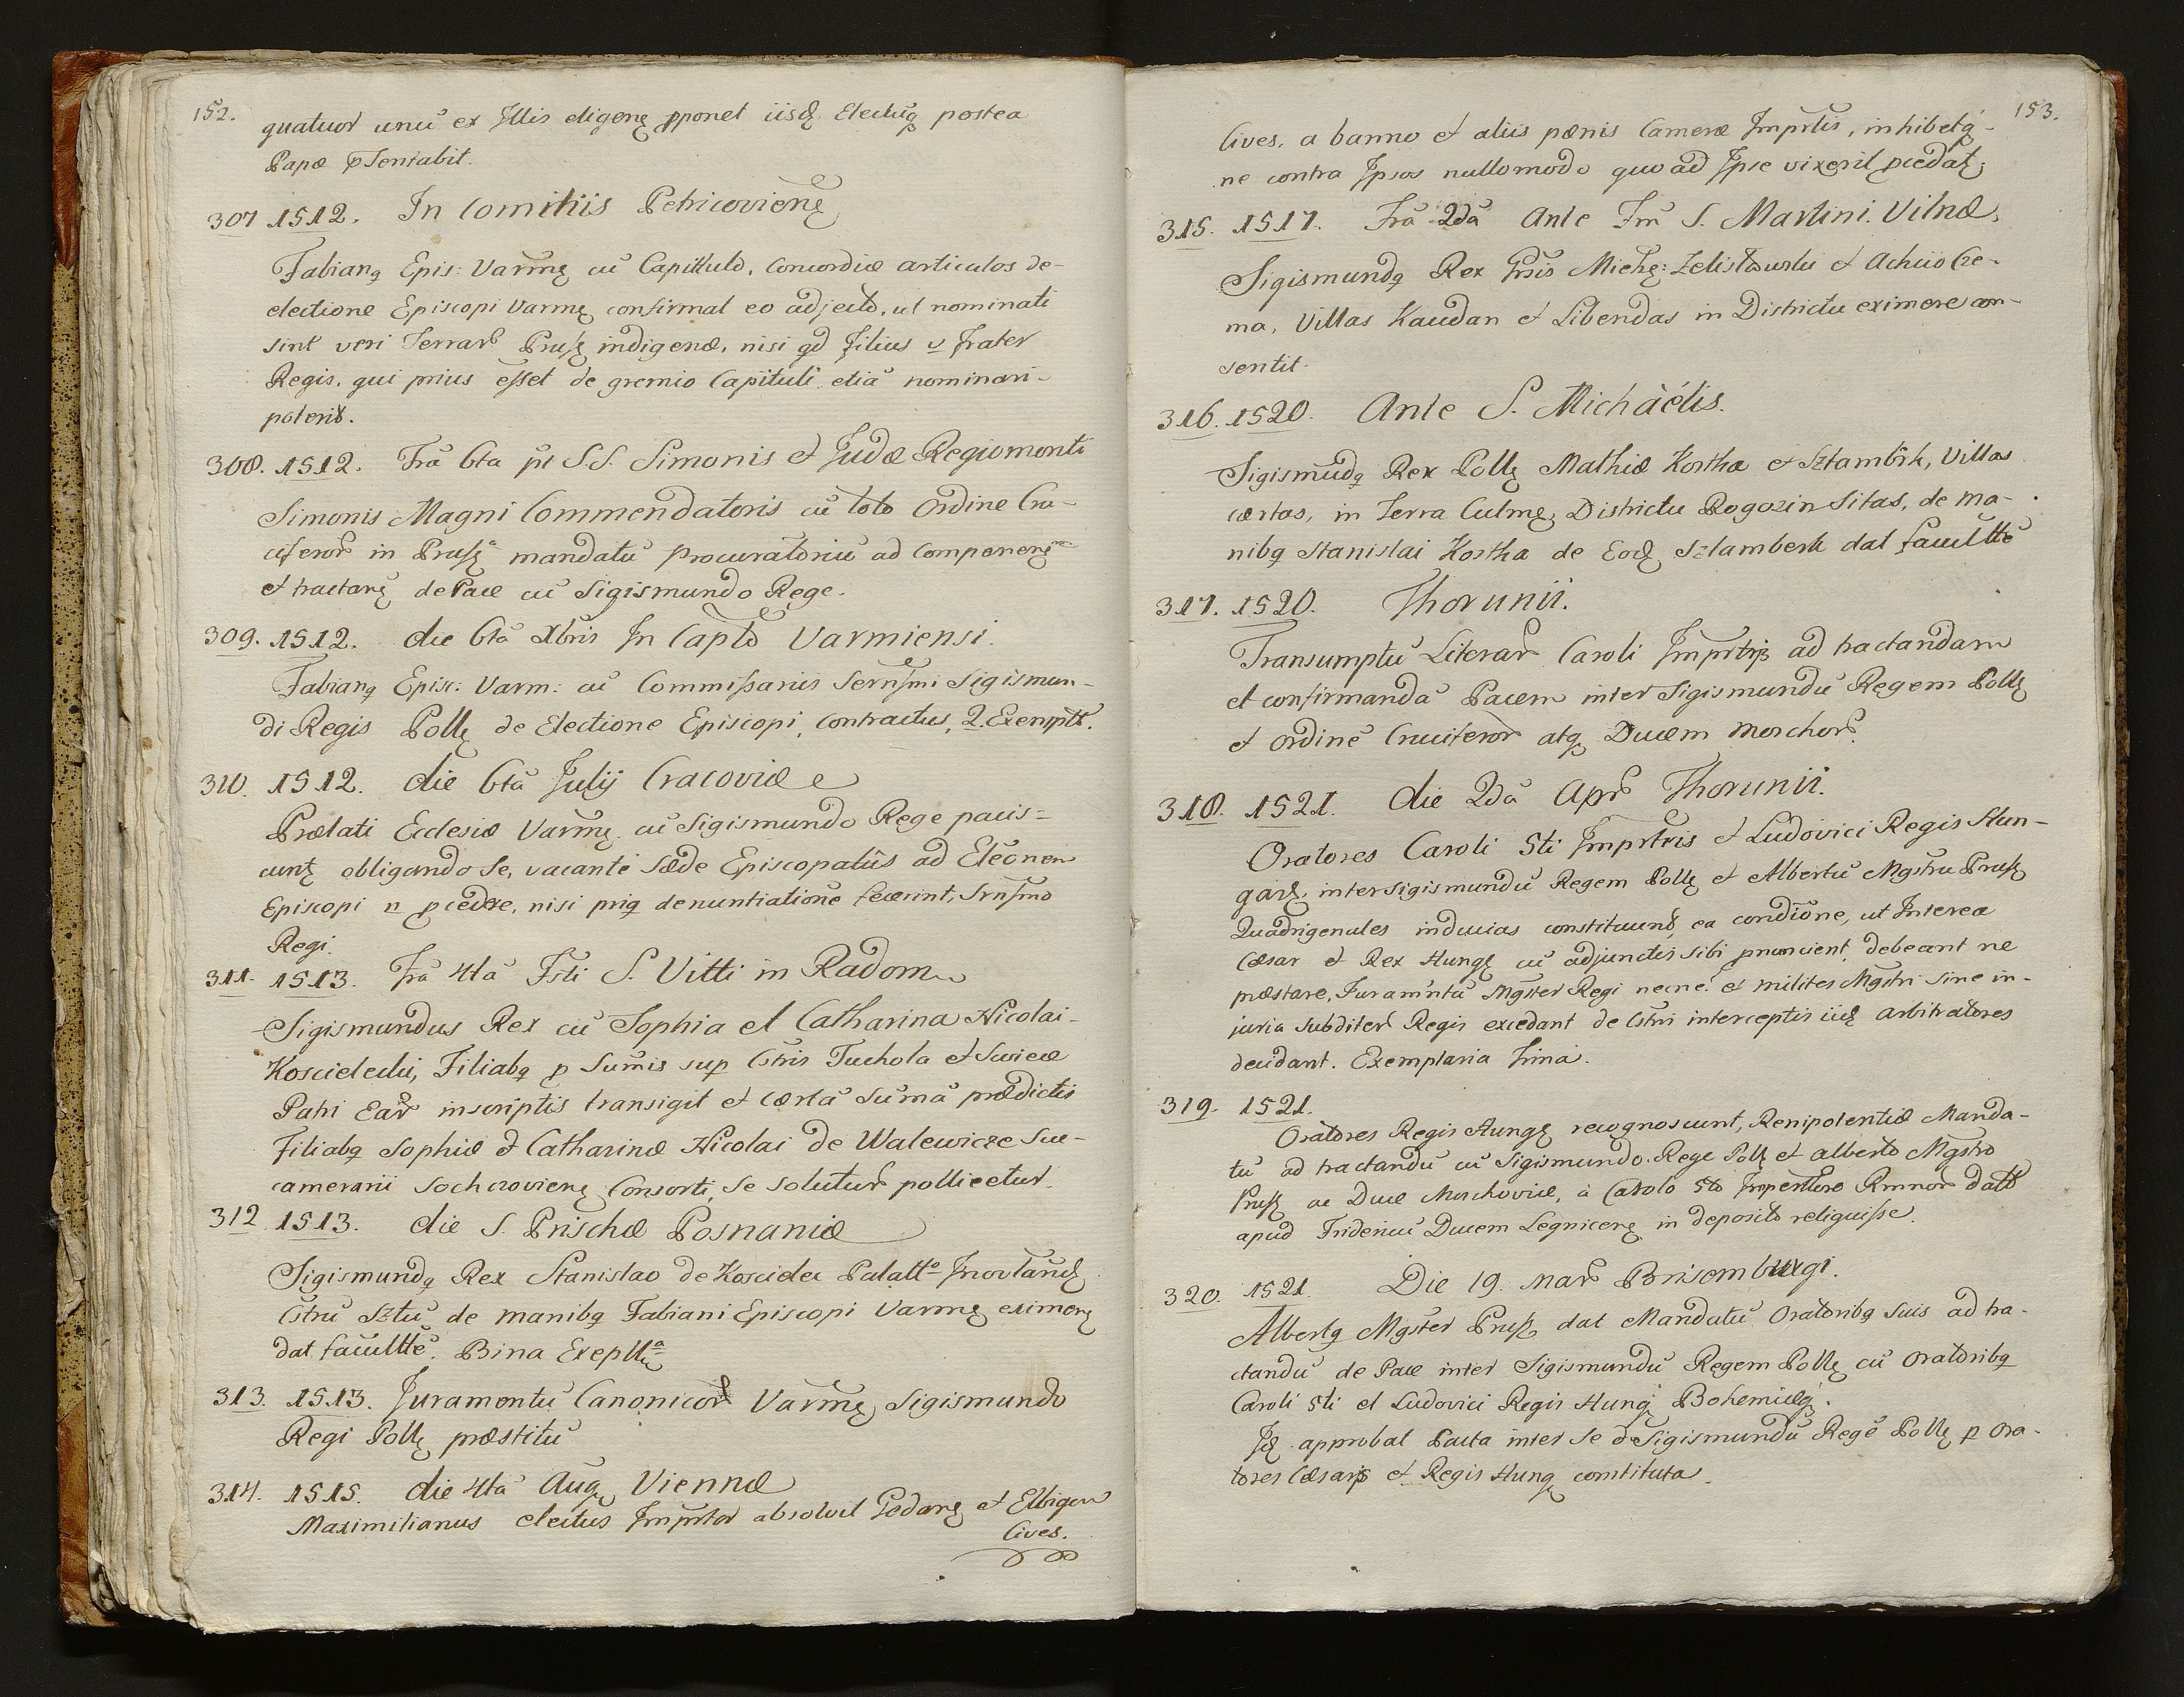 152.
quatuor unū ex Illis eligenę pponet iisdę Electūq postea
Papæ pSentabit.
307 1512. In Comitiis Petricovienę
Fabianq Epis: Varmę cū Capitulo, Concordiæ articulos de-
electione Episcopi Varmę confirmat eo adjecto, ut nominati
sint veri Terrar Prusę indigenæ, nisi qd filius v frater
Regis, qui prius esset de gremio Capituli etiā nominari-
poterit.
308. 1512. Frā 6ta pt S.S. Simonis et Judæ Regiomonti
Simonis Magni Commendatoris cū toto Ordine Cru-
ciferor in Prusę mandatū Procuratoriū ad Componenę
et tractanę de Pace cū Sigismundo Rege.
309. 1512. die 6tā Xbris In Caplo Varmiensi.
Fabianq Episc: Varm: cū Commissariis Sernsmi Sigismun-
di Regis Pollę de Electione Episcopi, contractus, 2. Exempt.
310. 1512. die 6tā Julij Cracoviæ
Prælati Ecclesiæ Varmę cū Sigismundo Rege pacis=
cuntę obligando se, vacante Sæde Episcopatūs ad Elēonem
Episcopi n pcedere, nisi priq denuntiatione fecerint, Srnsmo
Regi.
311. 1513. Frā 4tā Fsti S. Vitti in Radom
Sigismundus Rex cū Sophia et Catharina Nicolai-
Koscielecki, Filiabq p Sumis sup Cstris Tuchola et Swiece
Patri Ear inscriptis transigit et cærtā Sumā prædictis
Filiabq Sophiæ & Catharinæ Nicolai de Walewicze Suc-
camerarii Sochcrovienę Consorti, se solutur pollicetur.
312 1513. die S. Prischæ Posnaniæ
Sigismundq Rex Stanislao de Koscielec Palatto Jnovlandę
Cstrū Sztū de manibq Fabiani Episcopi Varmę eximenę
dat facultte. Bina Exeplla
313. 1513. Juramentū Canonicor Varmę Sigismundo
Regi Pollę præstitū
314. 1515. die 4tā Augę Viennæ
Maximilianus electus Jmprtor absolvit Gedanę et Elbigen
Cives.
153.
Cives, a banno et aliis pænis Cameræ Jmprlis, inhibetq-
ne contra Jpsos nullomodo quo ad Jpse vixerit pcedatę
315. 1517. Frā 2dā Ante Fm S. Martini. Vilnæ,
Sigismundq Rex Grsis Miehę: Zelislawski et Achiio Cre-
ma, Villas Kaudan et Libendas in Districtu eximere con-
sentit.
316. 1520. Ante S. Michàëlis.
Sigismūdq Rex Pollę Mathiæ Kostha et Sztambrk, Villas
cærtas, in Terra Culmę, Districtu Rogozin Sitas, de ma-
nibq Stanislai Kostha de Eodę Sztamberk dat facultte
317. 1520. Thorunii.
Transumptū Literar Caroli Jmprtrjs ad tractandam
et confirmandā Pacem inter Sigismundū Regem Pollę
et Ordinē Cruciferor atq Ducem Moschor.
318. 1521. die 2dā Apr Thorunii.
Oratores Caroli 5ti Jmprtris et Ludovici Regis Hun-
gariæ, inter Sigismundū Regem Pollę et Albertū Mgstru Prusę
Quadrigenules inducias constituunt, ea condīone, ut Interea
Cæsar et Rex Hungę cū adjunctis sibi pnuncient, debeant ne
præstare, Jurammtū Mgster Regi necne? et milites Mgstri Sine in-
juria Subditor Regis excedant de Cstris interceptis iidę arbitratores
decidant. Exemplaria Trina.
319. 1521.
Oratores Regis Hungę recognoscunt, Plenipotentiæ Manda-
tū ad tractandū cū Sigismundo Rege Pollę et Alberto Mgstro
Prusę ac Duce Moschoviæ, à Carolo 5to Jmpertore Rmnor datt
apud Fridericū Ducem Legnicenę in deposito reliquisse.
320. 1521. Die 19. Mar Brisomburgi.
Albertq Mgster Prusę dat Mandatū Oratoribq Suis ad tra-
ctandū de Pace inter Sigismundū Regem Pollę cū Oratoribq
Caroli 5ti et Ludovici Regis Hungę Bohemiæq.
Jdę approbat Pacta inter Se & Sigismundū Regē Pollę p Ora-
tores Cæsarjs et Regis Hungę constituta.